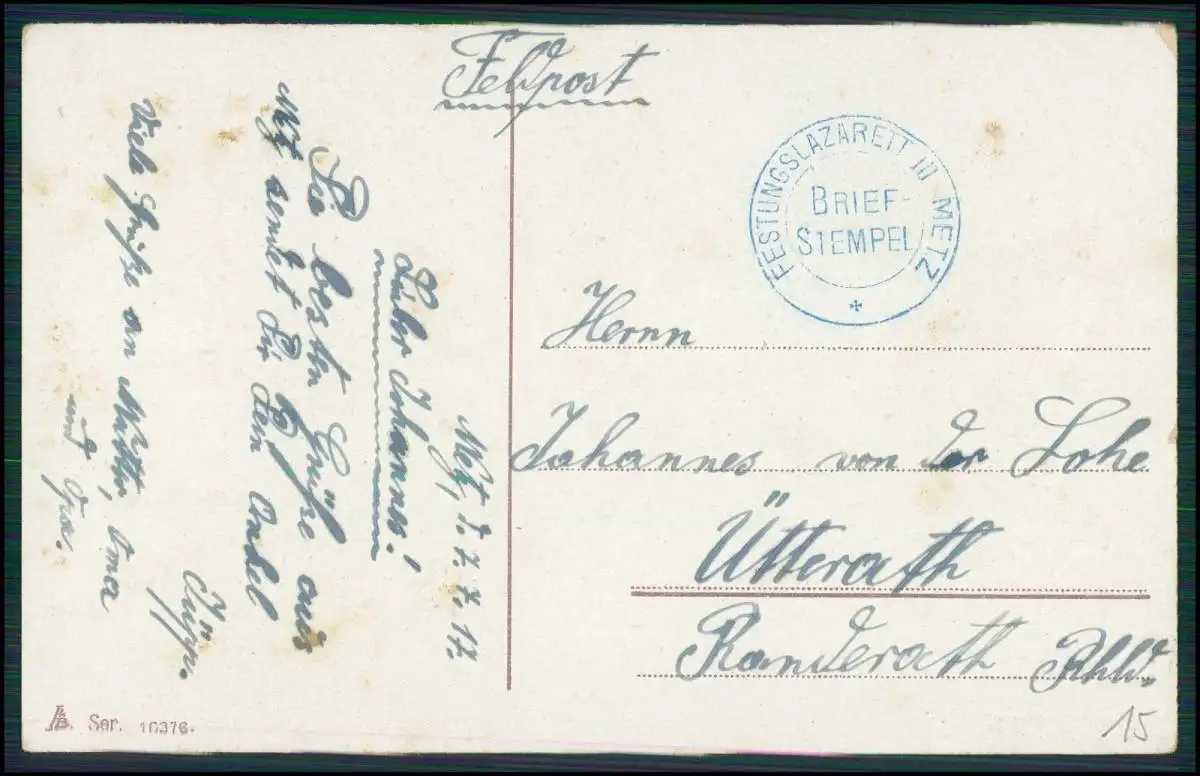 Feldpost
FESTUNGSLAZARETT III METZ
BRIEF-
STEMPEL
Herrn
Johannes von der Lohe
Ütterath
Randerath Rhld.
Metz, d. 7. 7. 17.
Lieber Johannes!
Die besten Grüße aus
Metz sendet Dir Dein Onkel
Jupp.
Viele Grüße an Mutter, Oma
und Opa.
Ser. 10376.
15